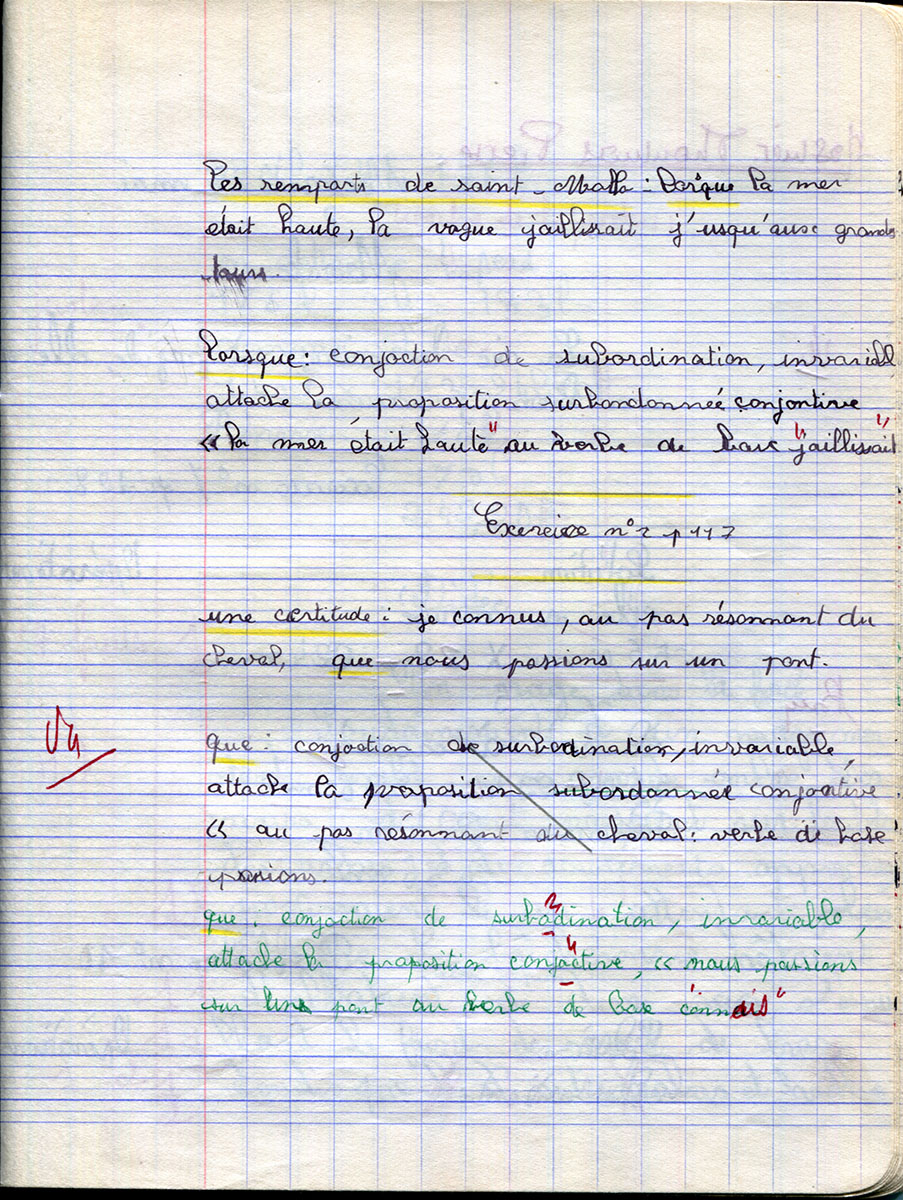 les remparts de saint-Malo : lorsque la mer
était haute, la vague jaillissait j'usqu'aux grands
tours.
lorsque : conjoction de subordination, invariabl
attache la proposition subbordonnée conjontive
«la mer était haute" au verbe de base "jaillissait"
Exercice n°2 p 117
une certitude : je connus, au pas résonnant du
cheval, que nous passions sur un pont.
Vu
que : conjoction de subordination, invariable,
attache la proposition subordonnée conjontive
« au pas résonnant du cheval : verbe de base
passions.
que : conjoction de subordination, invariable,
attache la proposition conjactive, « nous passions
sur un pont au verbe de base connais"